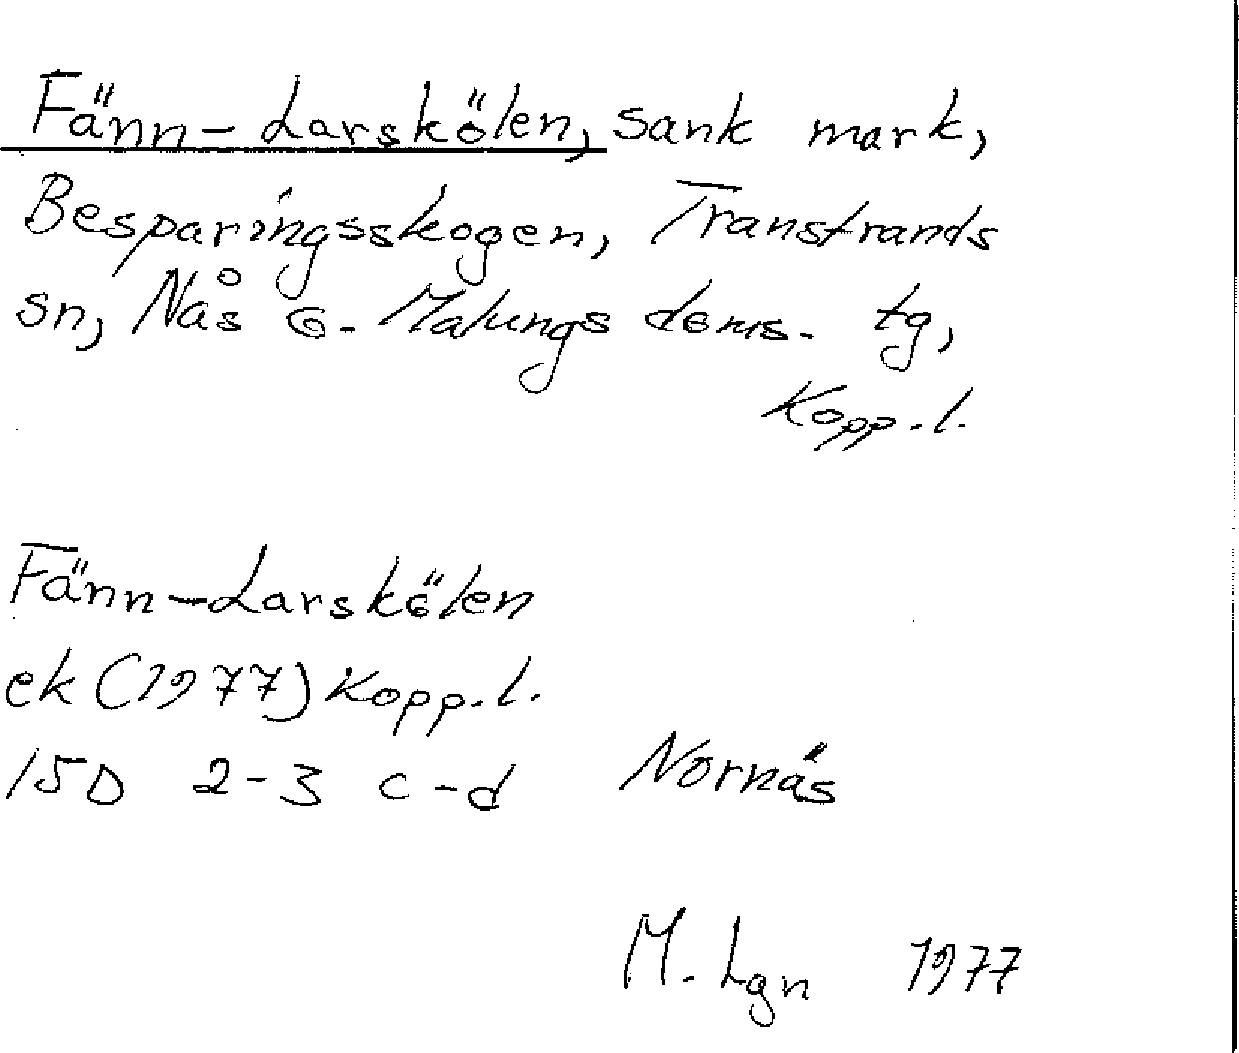 Fänn-Larskölen, sank mark,
Besparingsskogen, Transtrands
sn, Nås o. Malungs doms. tg,
Kopp. l.
Fänn-Larskölen
ek (1977) Kopp. l.
15D 2-3 c-d Nornäs
M. Lgn 1977